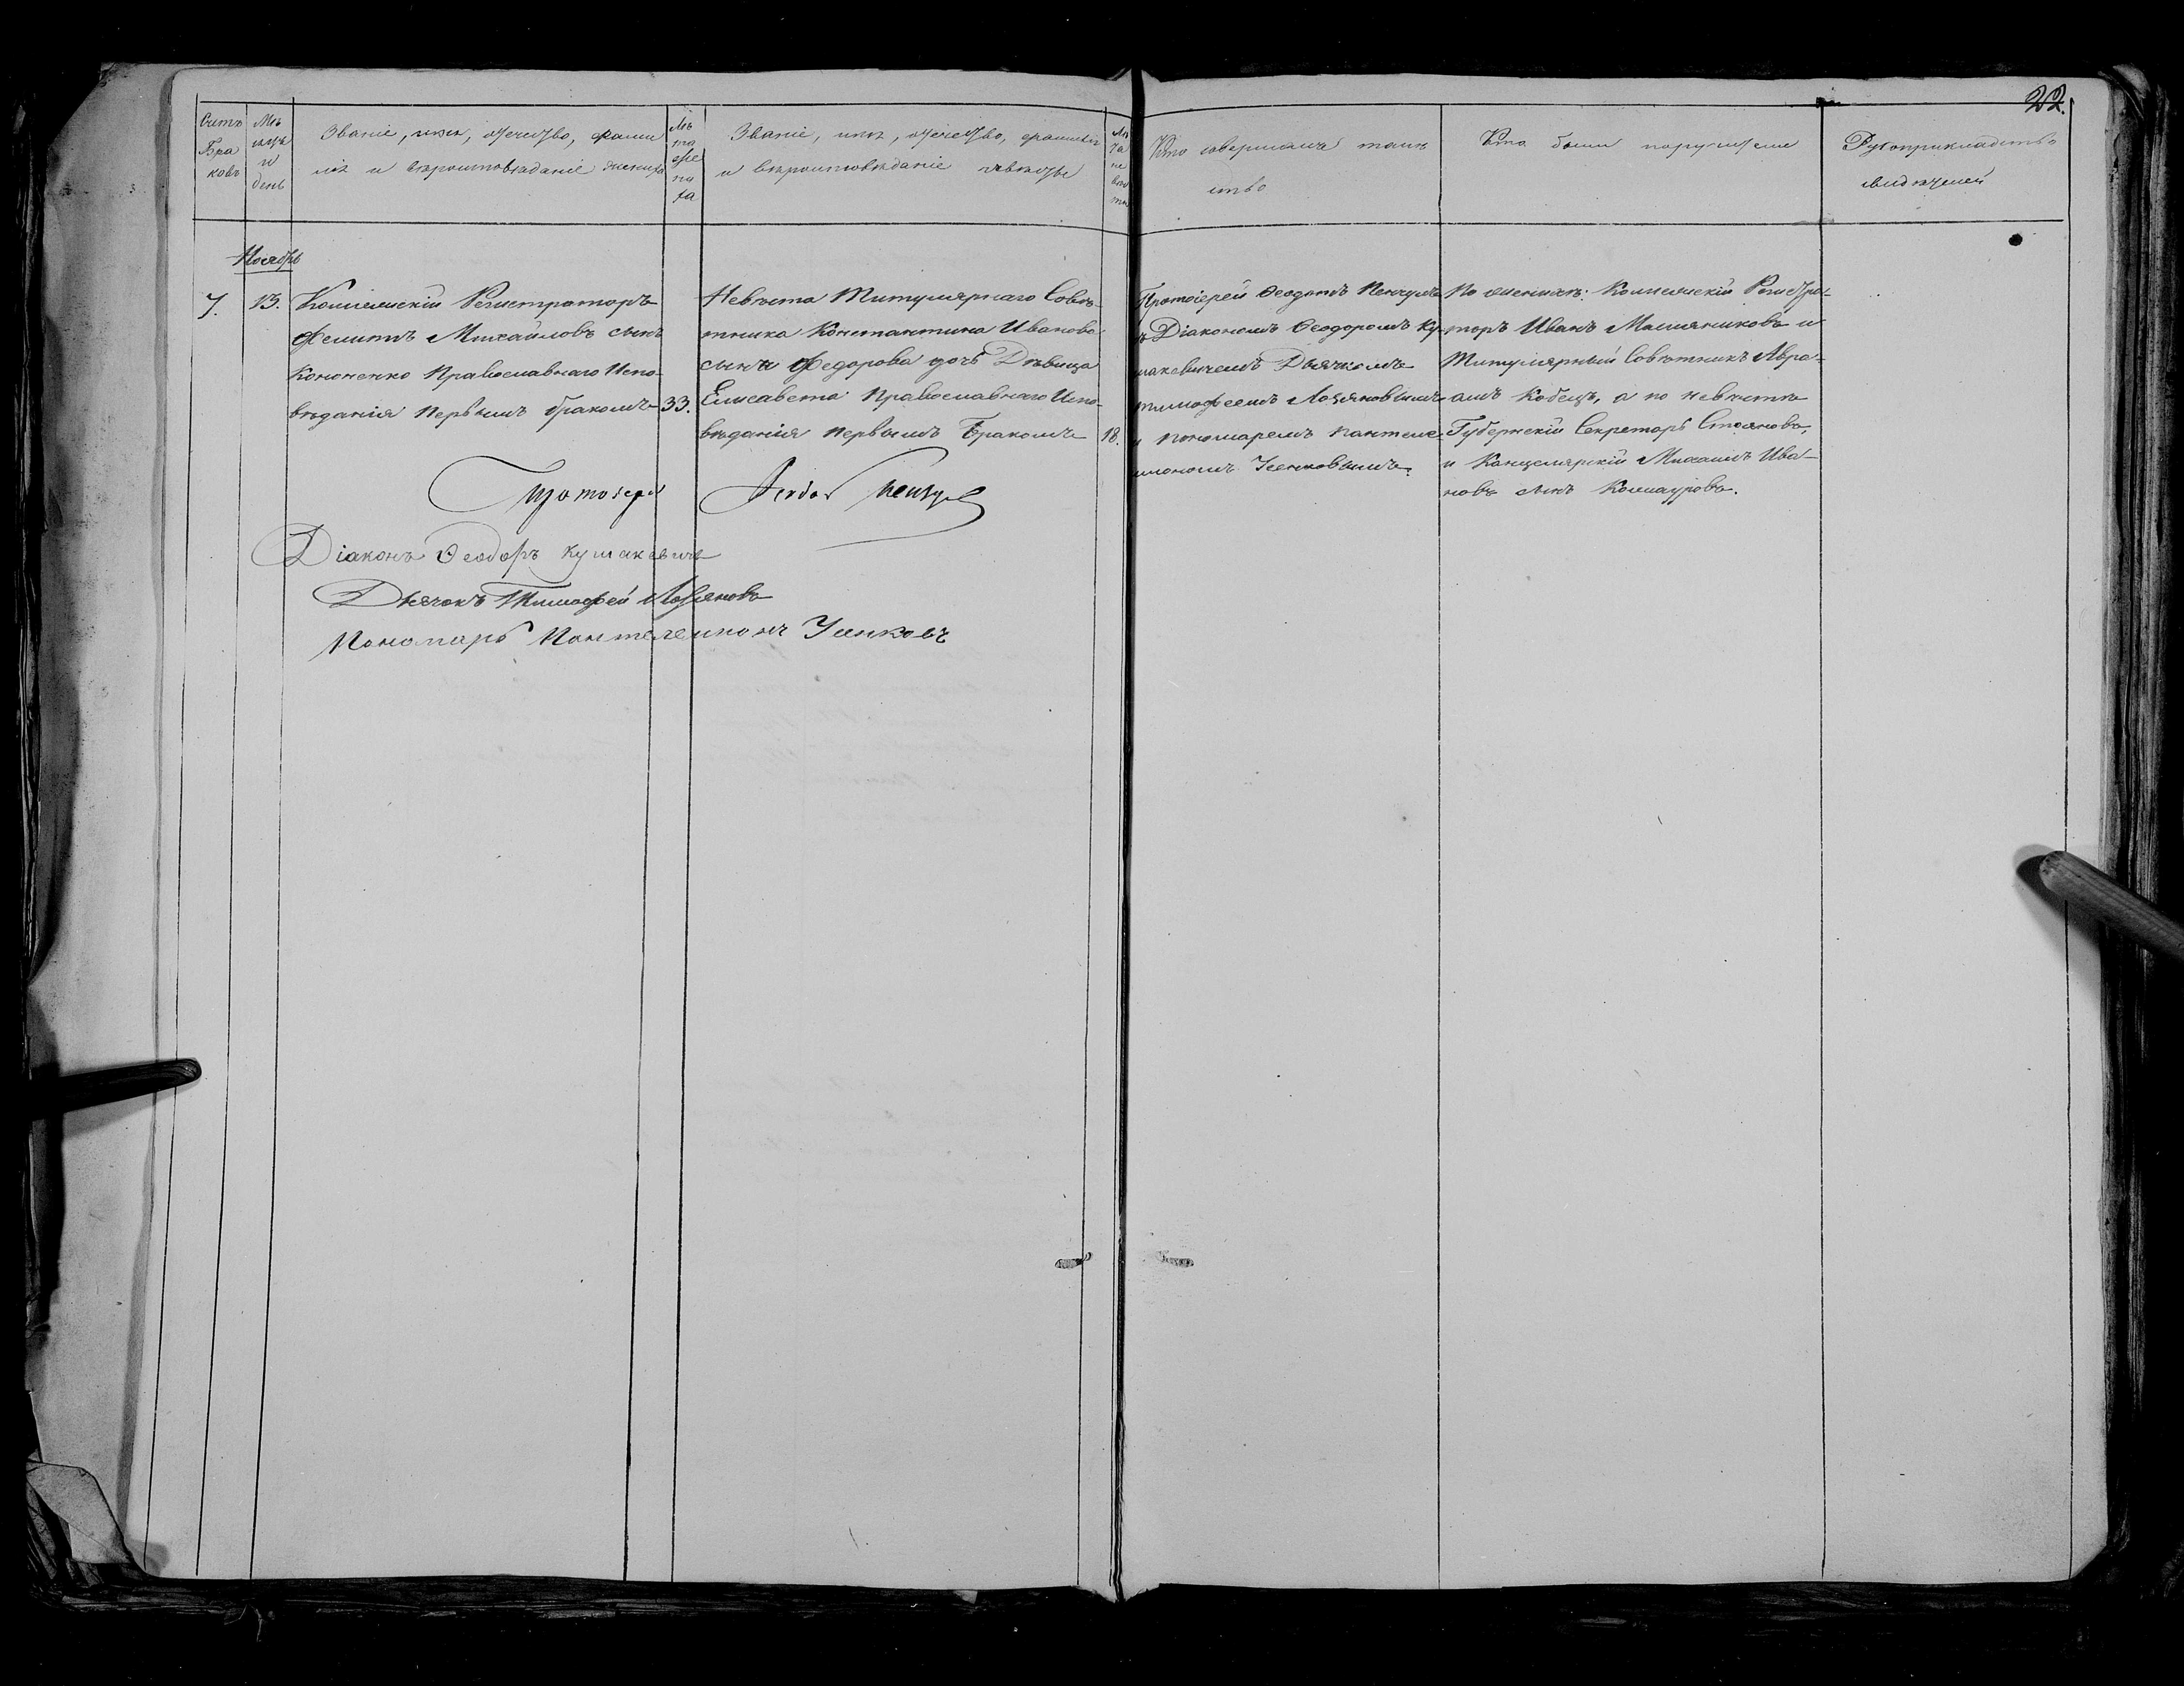 22.
Счетъ
Бра
ковъ
Мѣ
сяцъ
и
день
Званіе, имя, отчество, фами
лія и вѣроисповѣданіе жениха
Лѣ
та
же
ни
ха
Званіе, имя, отчество, фамилія
и вѣроисповѣданіе невѣсты
Лѣ
та
не
вѣс
ты
Кто совершалъ таин
ство
Кто были поручители
Рукоприкладство
свидѣтелей
Ноябрь
7.
13.
Коллежскій Регистраторъ
Филиппъ Михайловъ сынъ
Кононенко Православнаго Испо-
вѣданія первымъ бракомъ
33.
Невѣста Титулярнаго Совѣ-
тника Константина Иванова
сына Федорова дочь Дѣвица
Елисавета Православнаго Испо-
вѣданія первымъ Бракомъ
18.
Протоіерей Ѳеодотъ
съ Діакономъ Ѳеодоромъ Ку-
шакевичемъ Дьячкомъ
Тимофеемъ Лобяновымъ
и пономаремъ Пантеле-
имономъ Усенковымъ.
По женихѣ: Коллежскій Регистра-
торъ Иванъ Масляниковъ и
Титулярный Совѣтникъ Авра-
амъ Кобецъ, а по невѣстѣ
Губернскій Секретарь Стояновъ,
и Канцелярскій Михаилъ Ива-
новъ сынъ
Протоіерей
Діаконъ Ѳеодоръ Кушакевичъ
Дьячокъ Тимофей Лобяновъ
Пономарь Пантелеимонъ Усенковъ